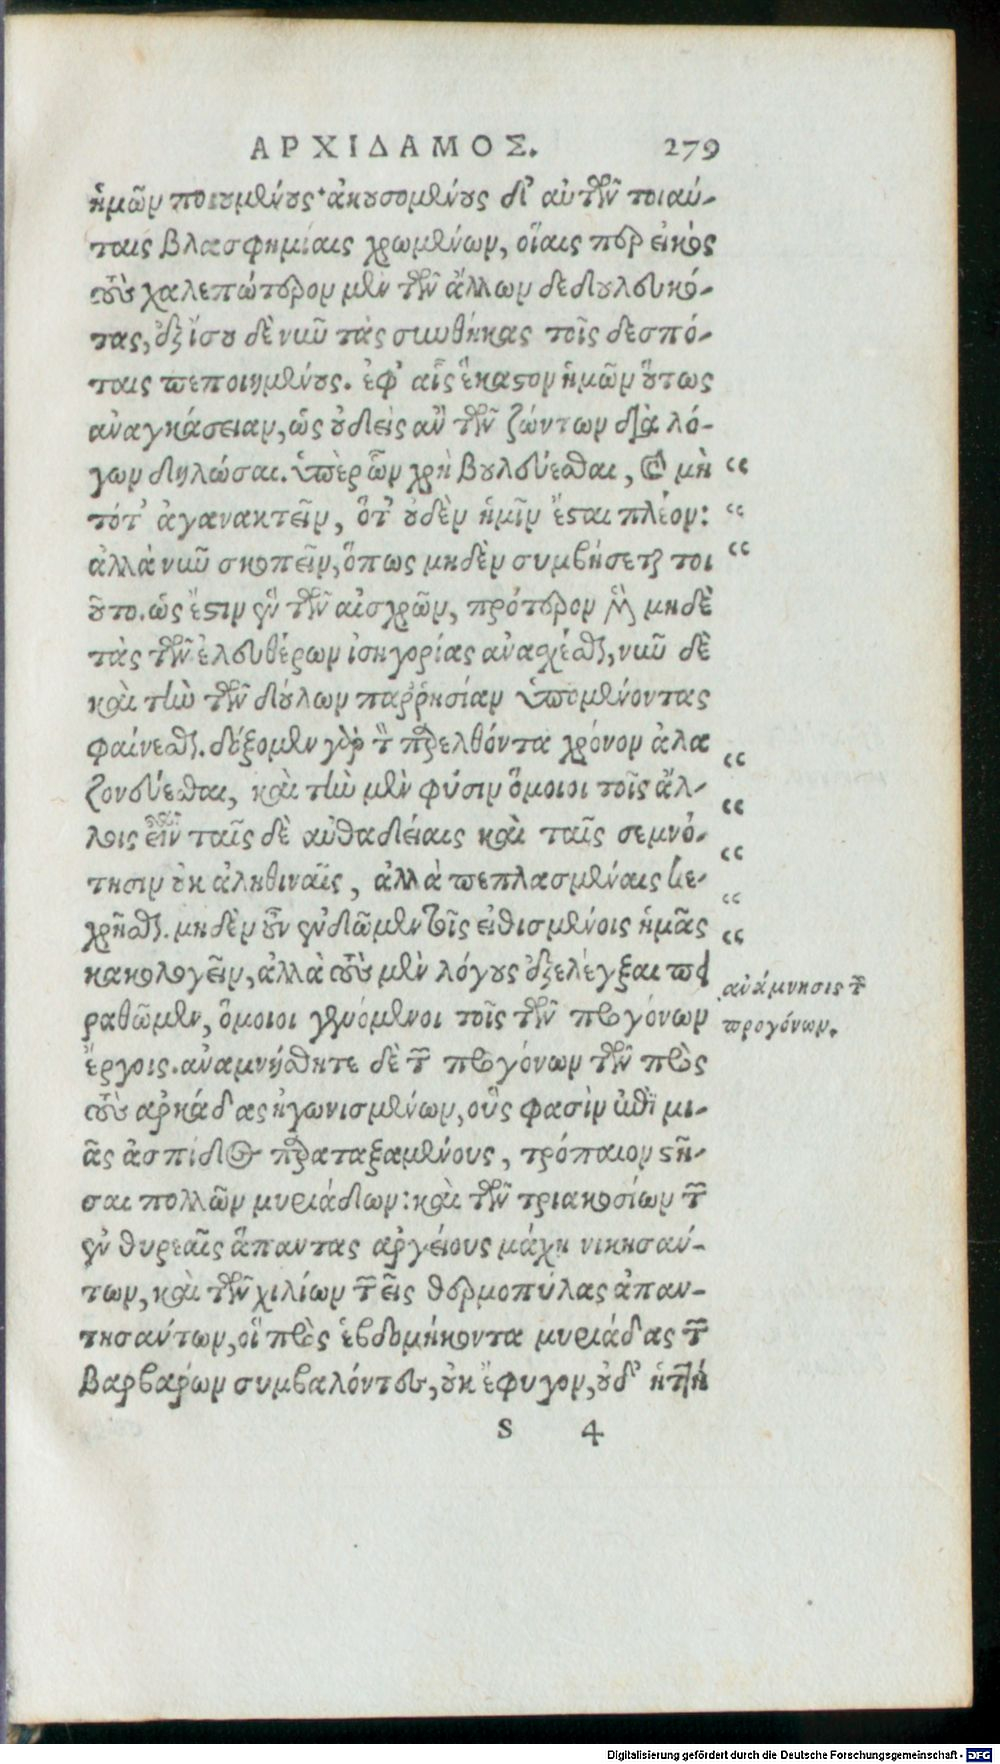 ΑΡΧΙΔΑΜΟΣ. 279
ἡμῶν ποιουμένους· ἀκουσομένους δ' αὐτῶν τοιαύ-
ταις βλασφημίαις χρωμένων, οἵαις περ εἰκὸς
τοὺς χαλεπώτερον μὲν τῶν ἄλλων δεδουλευκό-
τας, ἐξ ἴσου δὲ νῦν τὰς συνθήκας τοῖς δεσπό-
ταις πεποιημένους. ἐφ' αἷς ἕκαστον ἡμῶν οὕτως
ἀναγκάσειαν, ὡς οὐδεὶς ἂν τῶν ζώντων διὰ λό-
γων δηλώσαι. ὑπὲρ ὧν χρὴ βουλεύεσθαι, καὶ μὴ “
τότ' ἀγανακτεῖν, ὅτ' οὐδὲν ἡμῖν ἔσται πλέον: “
ἀλλὰ νῦν σκοπεῖν, ὅπως μηδὲν συμβήσεται τοι “
οῦτο. ὡς ἔστιν ἓν τῶν αἰσχρῶν, πρότερον μὲν μηδὲ
τὰς τῶν ἐλευθέρων ἰσηγορίας ἀνασχέσθαι, νῦν δὲ
καὶ τὴν τῶν δούλων παῤῥησίαν ὑπομένοντας
φαίνεσθαι. δόξομεν γὰρ τὸν παρελθόντα χρόνον ἀλα “
ζονεύεσθαι, καὶ τὴν μὲν φύσιν ὅμοιοι τοῖς ἄλ- “
λοις εἶναι ταῖς δὲ αὐθαδείαις καὶ ταῖς σεμνό- “
τησιν οὐκ ἀληθιναῖς, ἀλλὰ πεπλασμέναις κε- “
χρῆσθαι. μηδὲν οὖν ἐνδῶμεν τοῖς εἰθισμένοις ἡμᾶς “
κακολογεῖν, ἀλλὰ τοὺς μὲν λόγους ἐξελέγξαι πει
ραθῶμεν, ὅμοιοι γενόμενοι τοῖς τῶν προγόνων
ἔργοις. ἀναμνήσθητε δὲ τῶν προγόνων τῶν πρὸς
τοὺς ἀρκάδας ἠγωνισμένων, οὓς φασὶν ἐπὶ μι-
ᾶς ἀσπίδος παραταξαμένους, τρόπαιον στῆ-
σαι πολλῶν μυριάδων: καὶ τῶν τριακοσίων τῶν
ἐν θυρεαῖς ἅπαντας ἀργείους μάχῃ νικησάν-
των, καὶ τῶν χιλίων τῶν εἰς θερμοπύλας ἀπαν-
τησάντων, οἳ πρὸς ἑβδομήκοντα μυριάδας τῶν
βαρβάρων συμβαλόντες, οὐκ ἔφυγον, οὐδ' ἡττή
S 4
ἀνάμνησις τῶν
προγόνων.
Digitalisierung gefördert durch die Deutsche Forschungsgemeinschaft - DFG